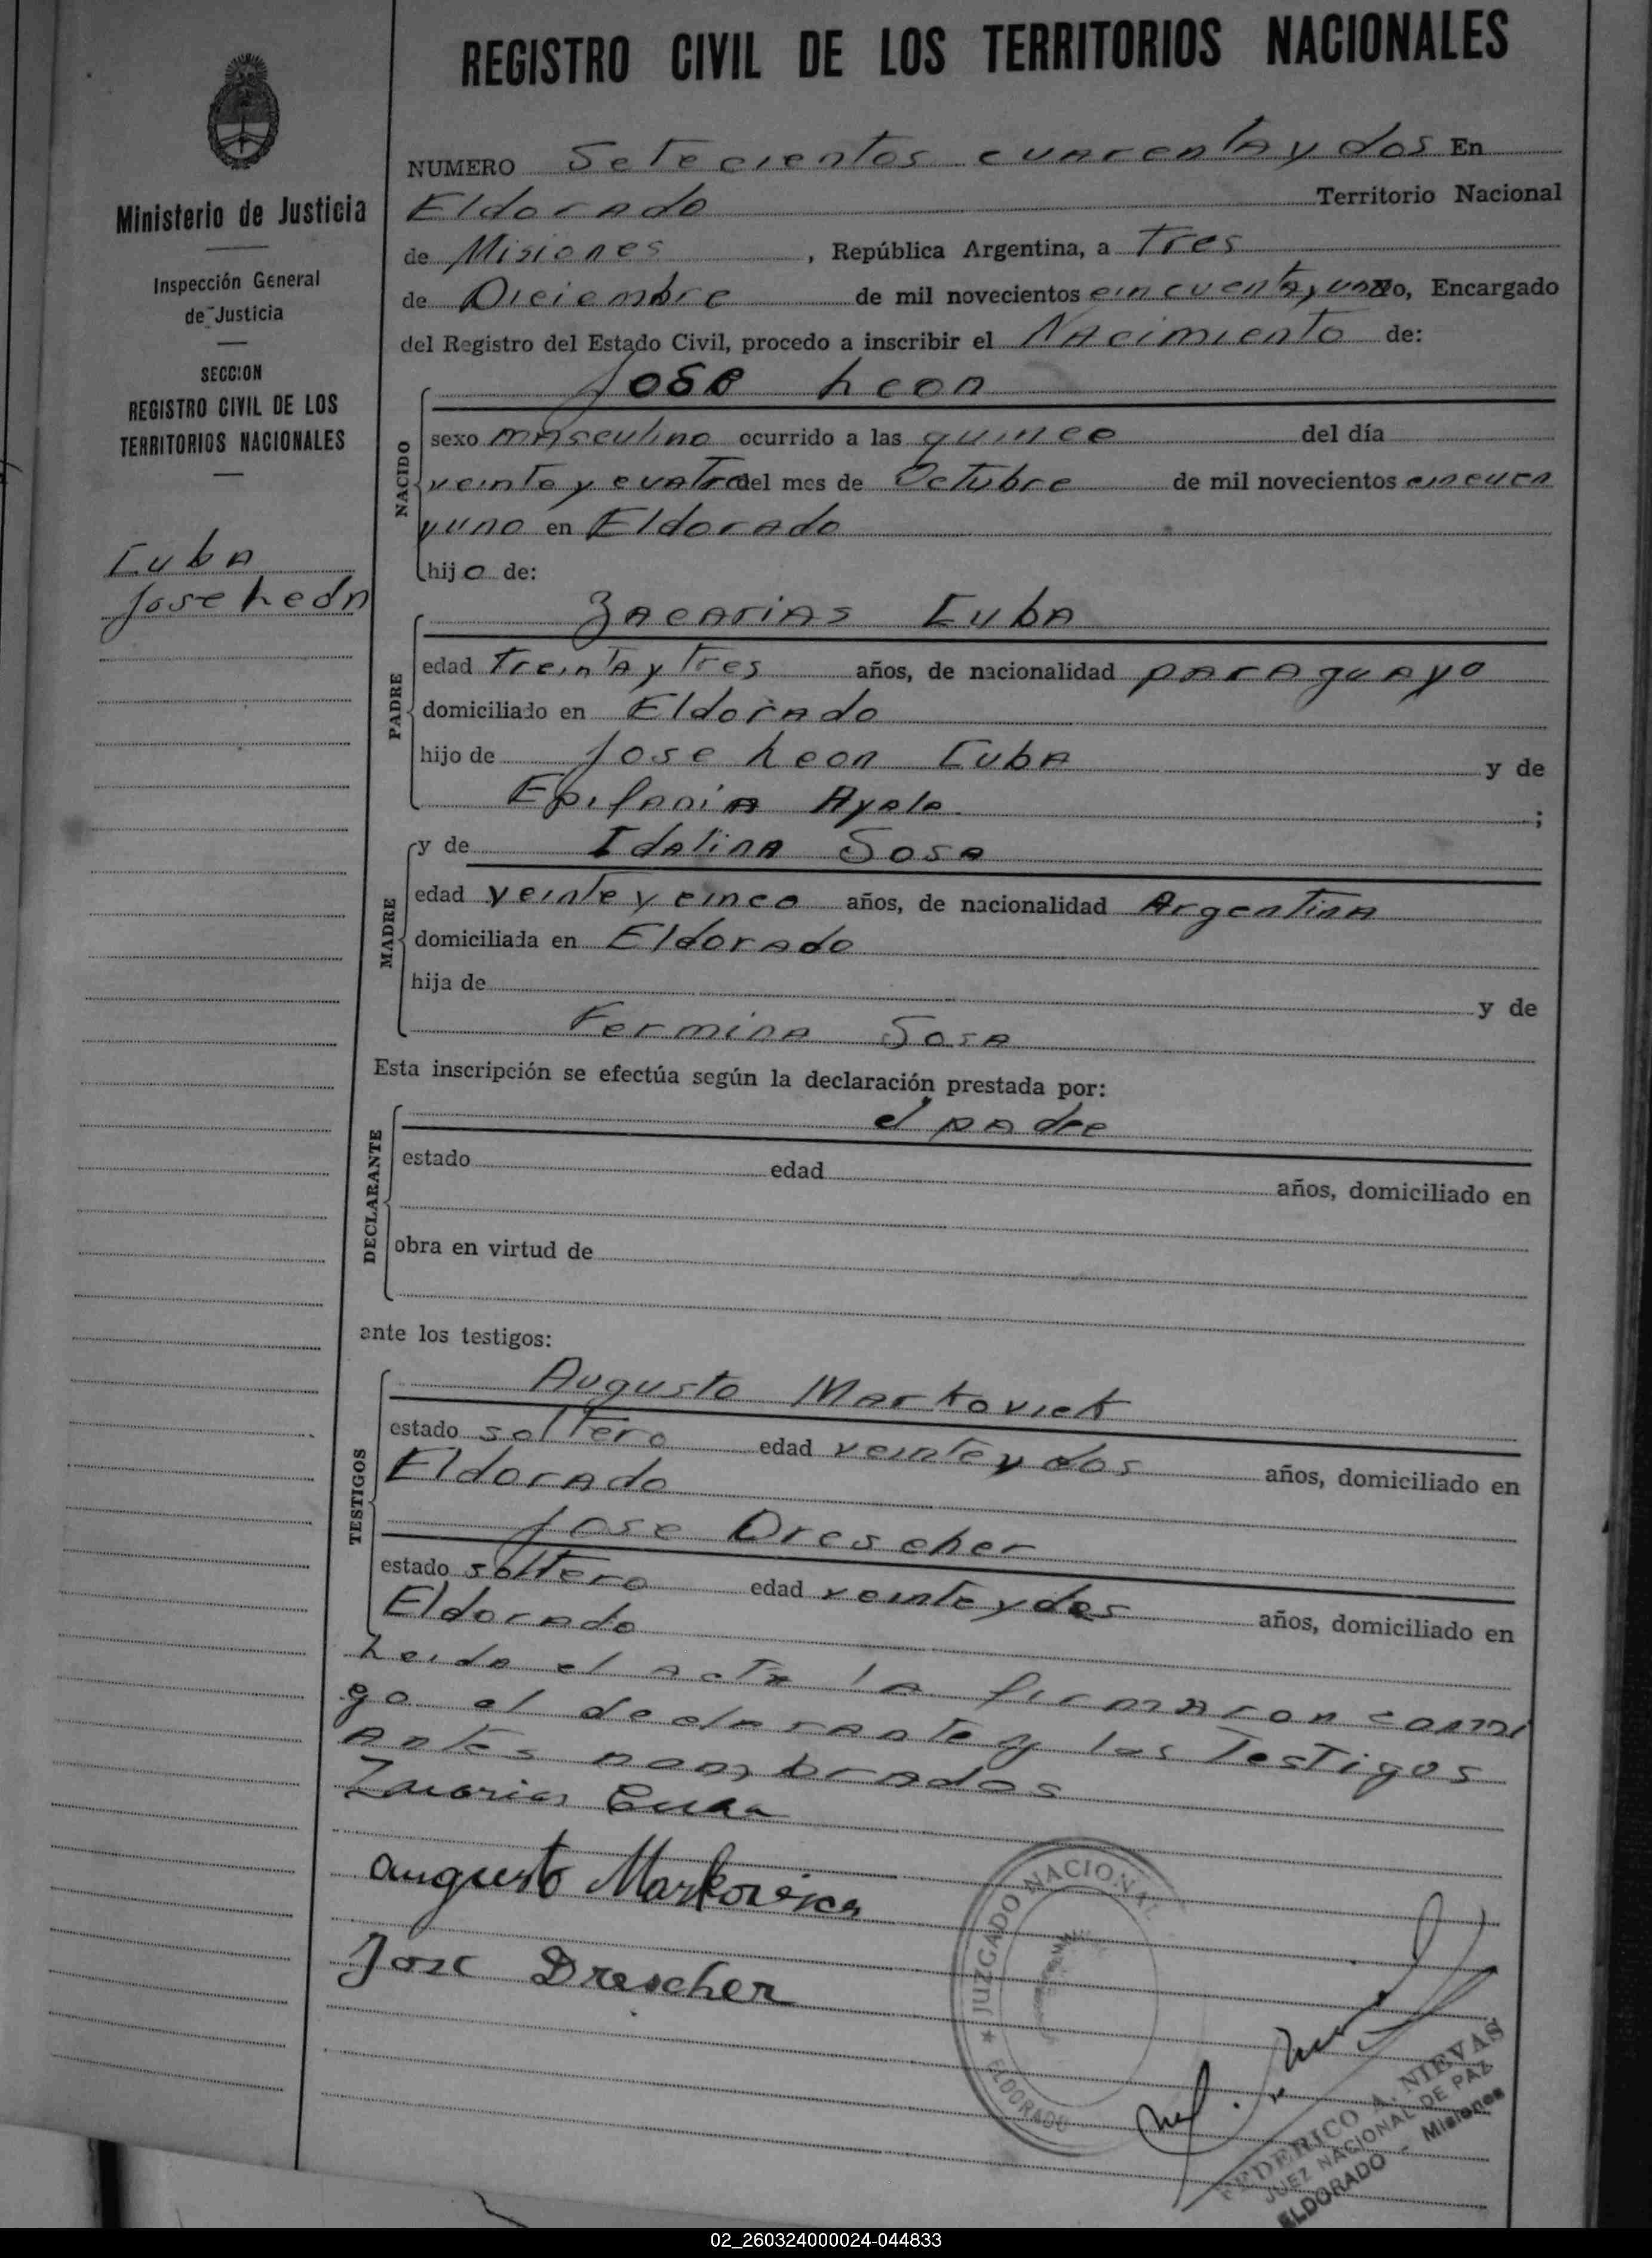 REGISTRO CIVIL DE LOS TERRITORIOS NACIONALES
Ministerio de Justicia
Inspección General
de Justicia
SECCION
REGISTRO CIVIL DE LOS
TERRITORIOS NACIONALES
Cuba
Jose Leon
NUMERO Setecientos cuarenta y dos En
Eldorado Territorio Nacional
de Misiones, República Argentina, a Tres
de Diciembre de mil novecientos cincuenta y uno, Encargado
del Registro del Estado Civil, procedo a inscribir el Nacimiento de:
NACIDO
Jose Leon
sexo masculino ocurrido a las quince del día
veinte y cuatro del mes de Octubre de mil novecientos cincuen
y uno en Eldorado
hijo de:
PADRE
Zacarias Cuba
edad Treinta y Tres años, de nacionalidad paraguayo
domiciliado en Eldorado
hijo de Jose Leon Cuba y de
Epifania Ayala ;
MADRE
y de Idalina Sosa
edad veinte y cinco años, de nacionalidad Argentina
domiciliada en Eldorado
hija de y de
Fermina Sosa
Esta inscripción se efectúa según la declaración prestada por:
DECLARANTE
el padre
estado edad años, domiciliado en
obra en virtud de
ante los testigos:
TESTIGOS
Augusto Markovick
estado soltero edad veinte y dos años, domiciliado en
Eldorado
Jose Drescher
estado soltero edad veinte y dos años, domiciliado en
Eldorado
Leida el acta la firmaron conmi
go el declarante y los Testigos
antes nombrados
Zacarias Cuba
Augusto
Jose Drescher
JUZGADO NACIONAL
ELDORADO
FEDERICO A. NIEVAS
JUEZ NACIONAL DE PAZ
ELDORADO - Misiones
02_260324000024-044833